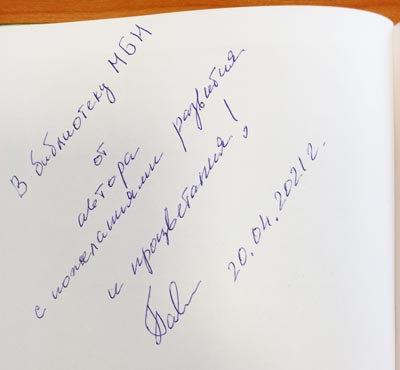 В библиотеку МБН
от
автора
с пожеланиями развития
и процветания!
20.04.2021г.